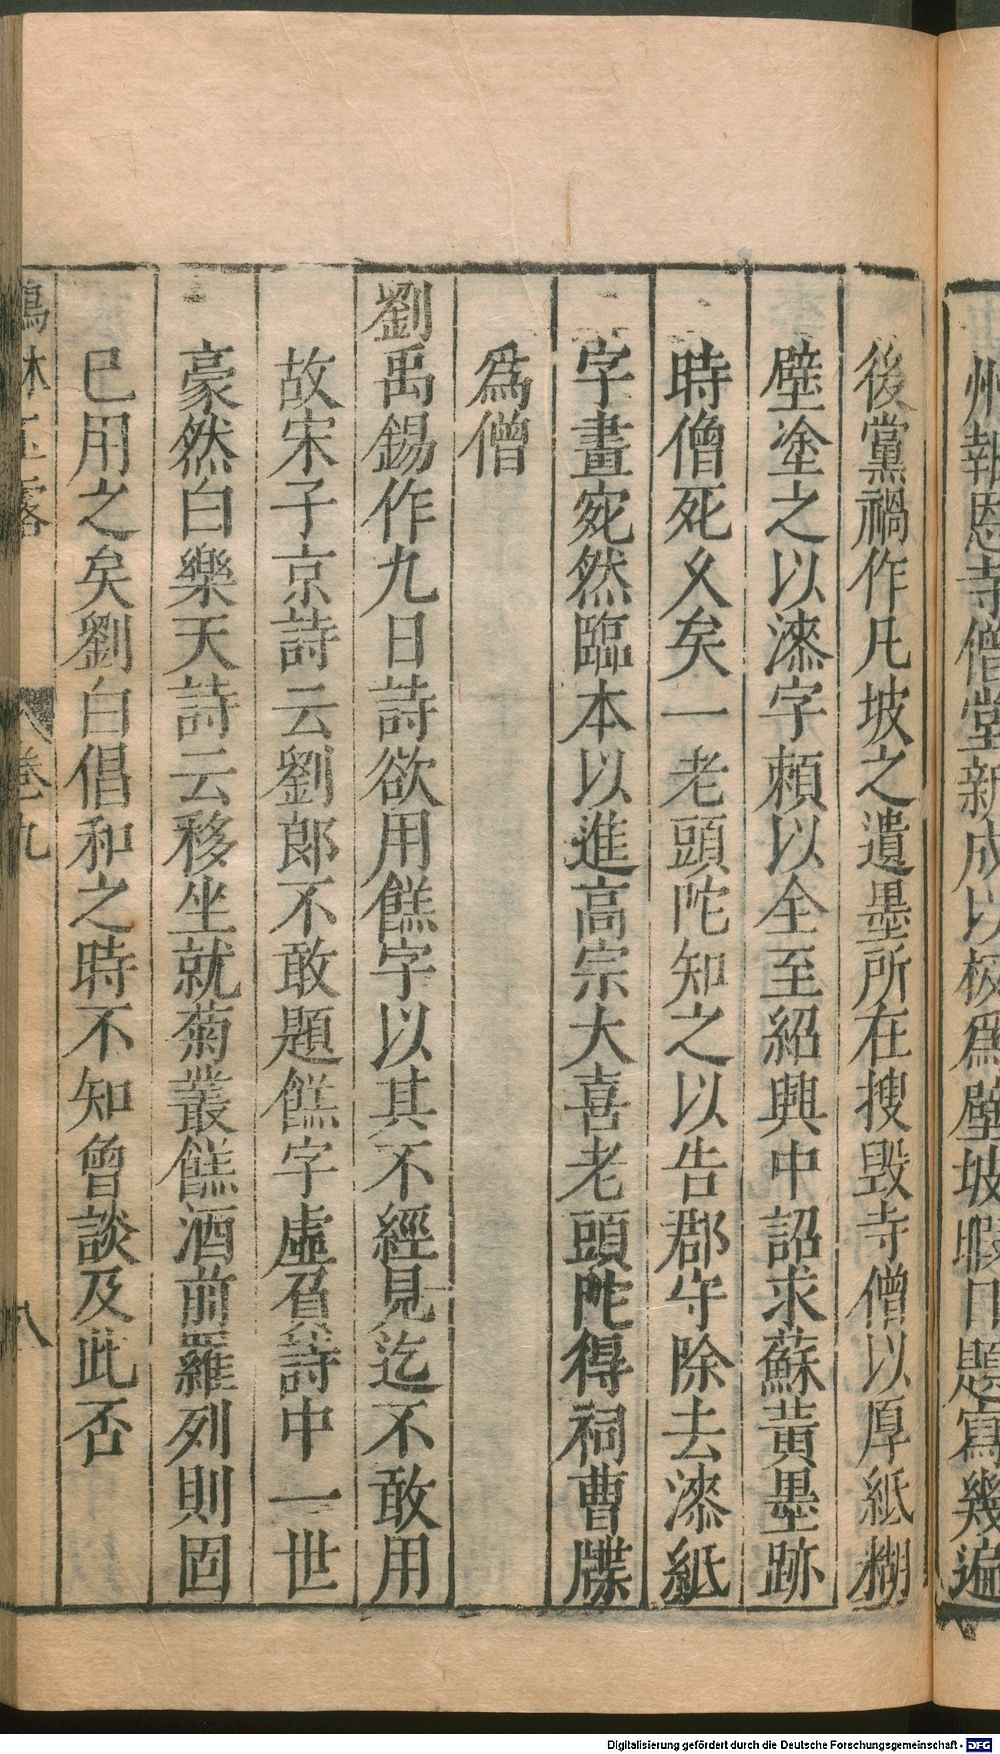 州報恩寺僧堂新成以板爲壁坡暇日題寫幾遍
後黨禍作凡坡之遺墨所在搜毀寺僧以厚紙糊
壁塗之以漆字賴以全至紹興中詔求蘇黃墨跡
時僧死乆矣一老頭陀知之以告郡守除去漆紙
字畫宛然臨本以進高宗大喜老頭陀得祠曹牒
爲僧
劉禹錫作九日詩欲用餻字以其不經見迄不敢用
故宋子京詩云劉郎不敢題餻字虛負詩中一世
豪然白樂天詩云移坐就菊叢餻酒前羅列則固
已用之矣劉白倡和之時不知曾談及此否
鶴林玉露 卷九 八
Digitalisierung gefördert durch die Deutsche Forschungsgemeinschaft - DFG